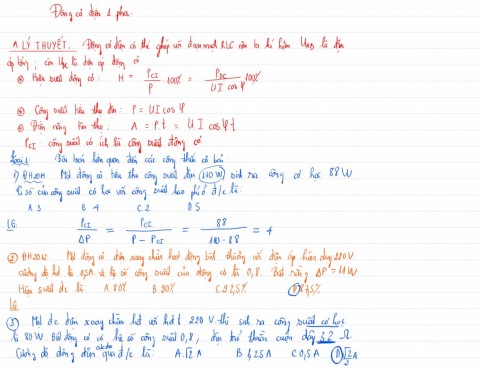 Động cơ điện 1 pha.
A. LÝ THUYẾT. Động cơ điện có thể ghép với đoạn mạch RLC nên ta kí hiệu U_AB là điện
áp tổng; còn U_ĐC là điện áp động cơ
⊛ Hiệu suất động cơ: H = P_CI / P · 100% = P_ĐC / UI cosφ 100%
⊛ Công suất tiêu thụ điện: P = UI cosφ
⊛ Điện năng tiêu thụ: A = P.t = UI cosφ t
P_CI: công suất có ích là công suất động cơ
Loại 1: Bài toán liên quan đến các công thức cơ bản:
1) ĐH2014 Một động cơ tiêu thụ công suất điện 110W, sinh ra công cơ học 88W
Tỉ số của công suất cơ học với công suất hao phí ở đ/c là:
A. 3 B. 4 C. 2 D. 5
LG: P_CI / ΔP = P_CI / P - P_CI = 88 / 110 - 88 = 4
② ĐH2012 Một động cơ điện xoay chiều hoạt động bình thường với điện áp hiệu dụng 220V
cường độ hd là 0,5A và hệ số công suất của động cơ là 0,8. Biết rằng ΔP = 11W
Hiệu suất đc là: A. 80% B. 90% C. 92,5% D. 87,5%
LG
③ Một đc điện xoay chiều hđ với hđt 220V thì sinh ra công suất cơ học
là 80W. Biết động cơ có hệ số công suất 0,8, điện trở thuần cuộn dây 32 Ω.
Cường độ dòng điện cực đại qua đ/c là: A. √2 A B. 1,25A C. 0,5A D. √2/2